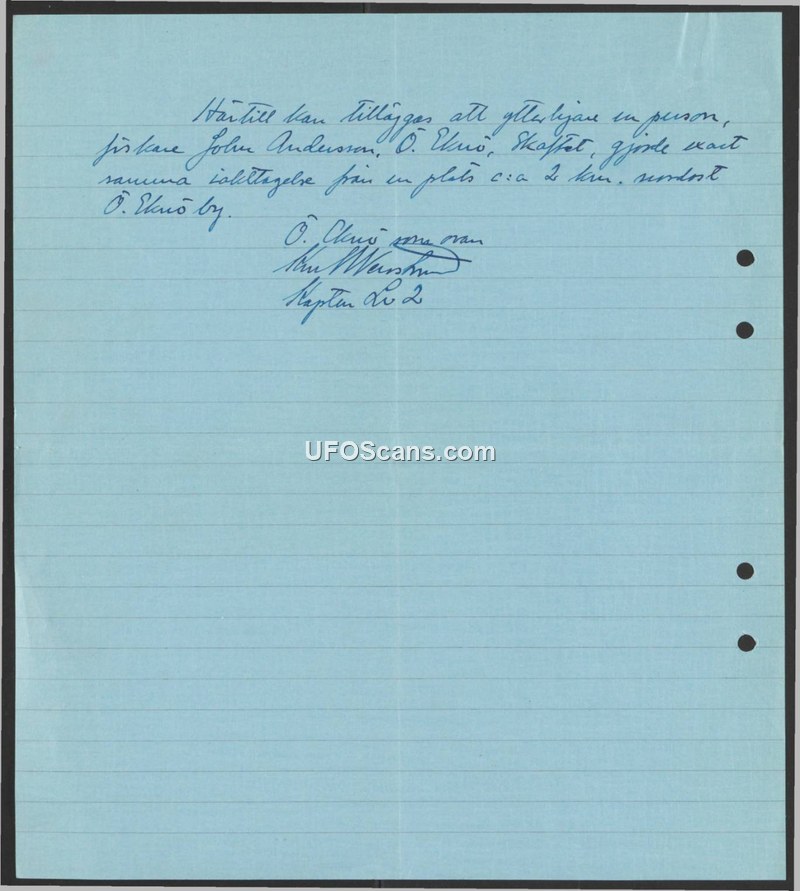 Härtill kan tilläggas att ytterligare en person,
fiskare John Andersson, Ö. Eknö, Skaftet, gjorde exakt
samma iakttagelse från en plats c:a 2 km. nordost
Ö. Eknö by.
Ö. Eknö som ovan
Kapten Lv 2
UFOScans.com